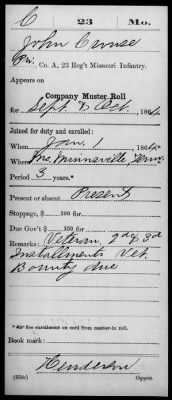 C 23 Mo.
John Crouse
Pvt., Co. A, 23 Reg't Missouri Infantry.
Appears on
Company Muster Roll
for Sept & Oct, 1864.
Joined for duty and enrolled:
When Jan. 1, 1864.*
Where Minnville, Tenn
Period 3 years.*
Present or absent Present
Stoppage, $ 100 for
Due Gov't $ 100 for
Remarks: Veteran, 2d & 3d
Installments Vet.
Bounty due
* See enrollment on card from muster-in roll.
Book mark:
Henderson
(358c) Copyist.